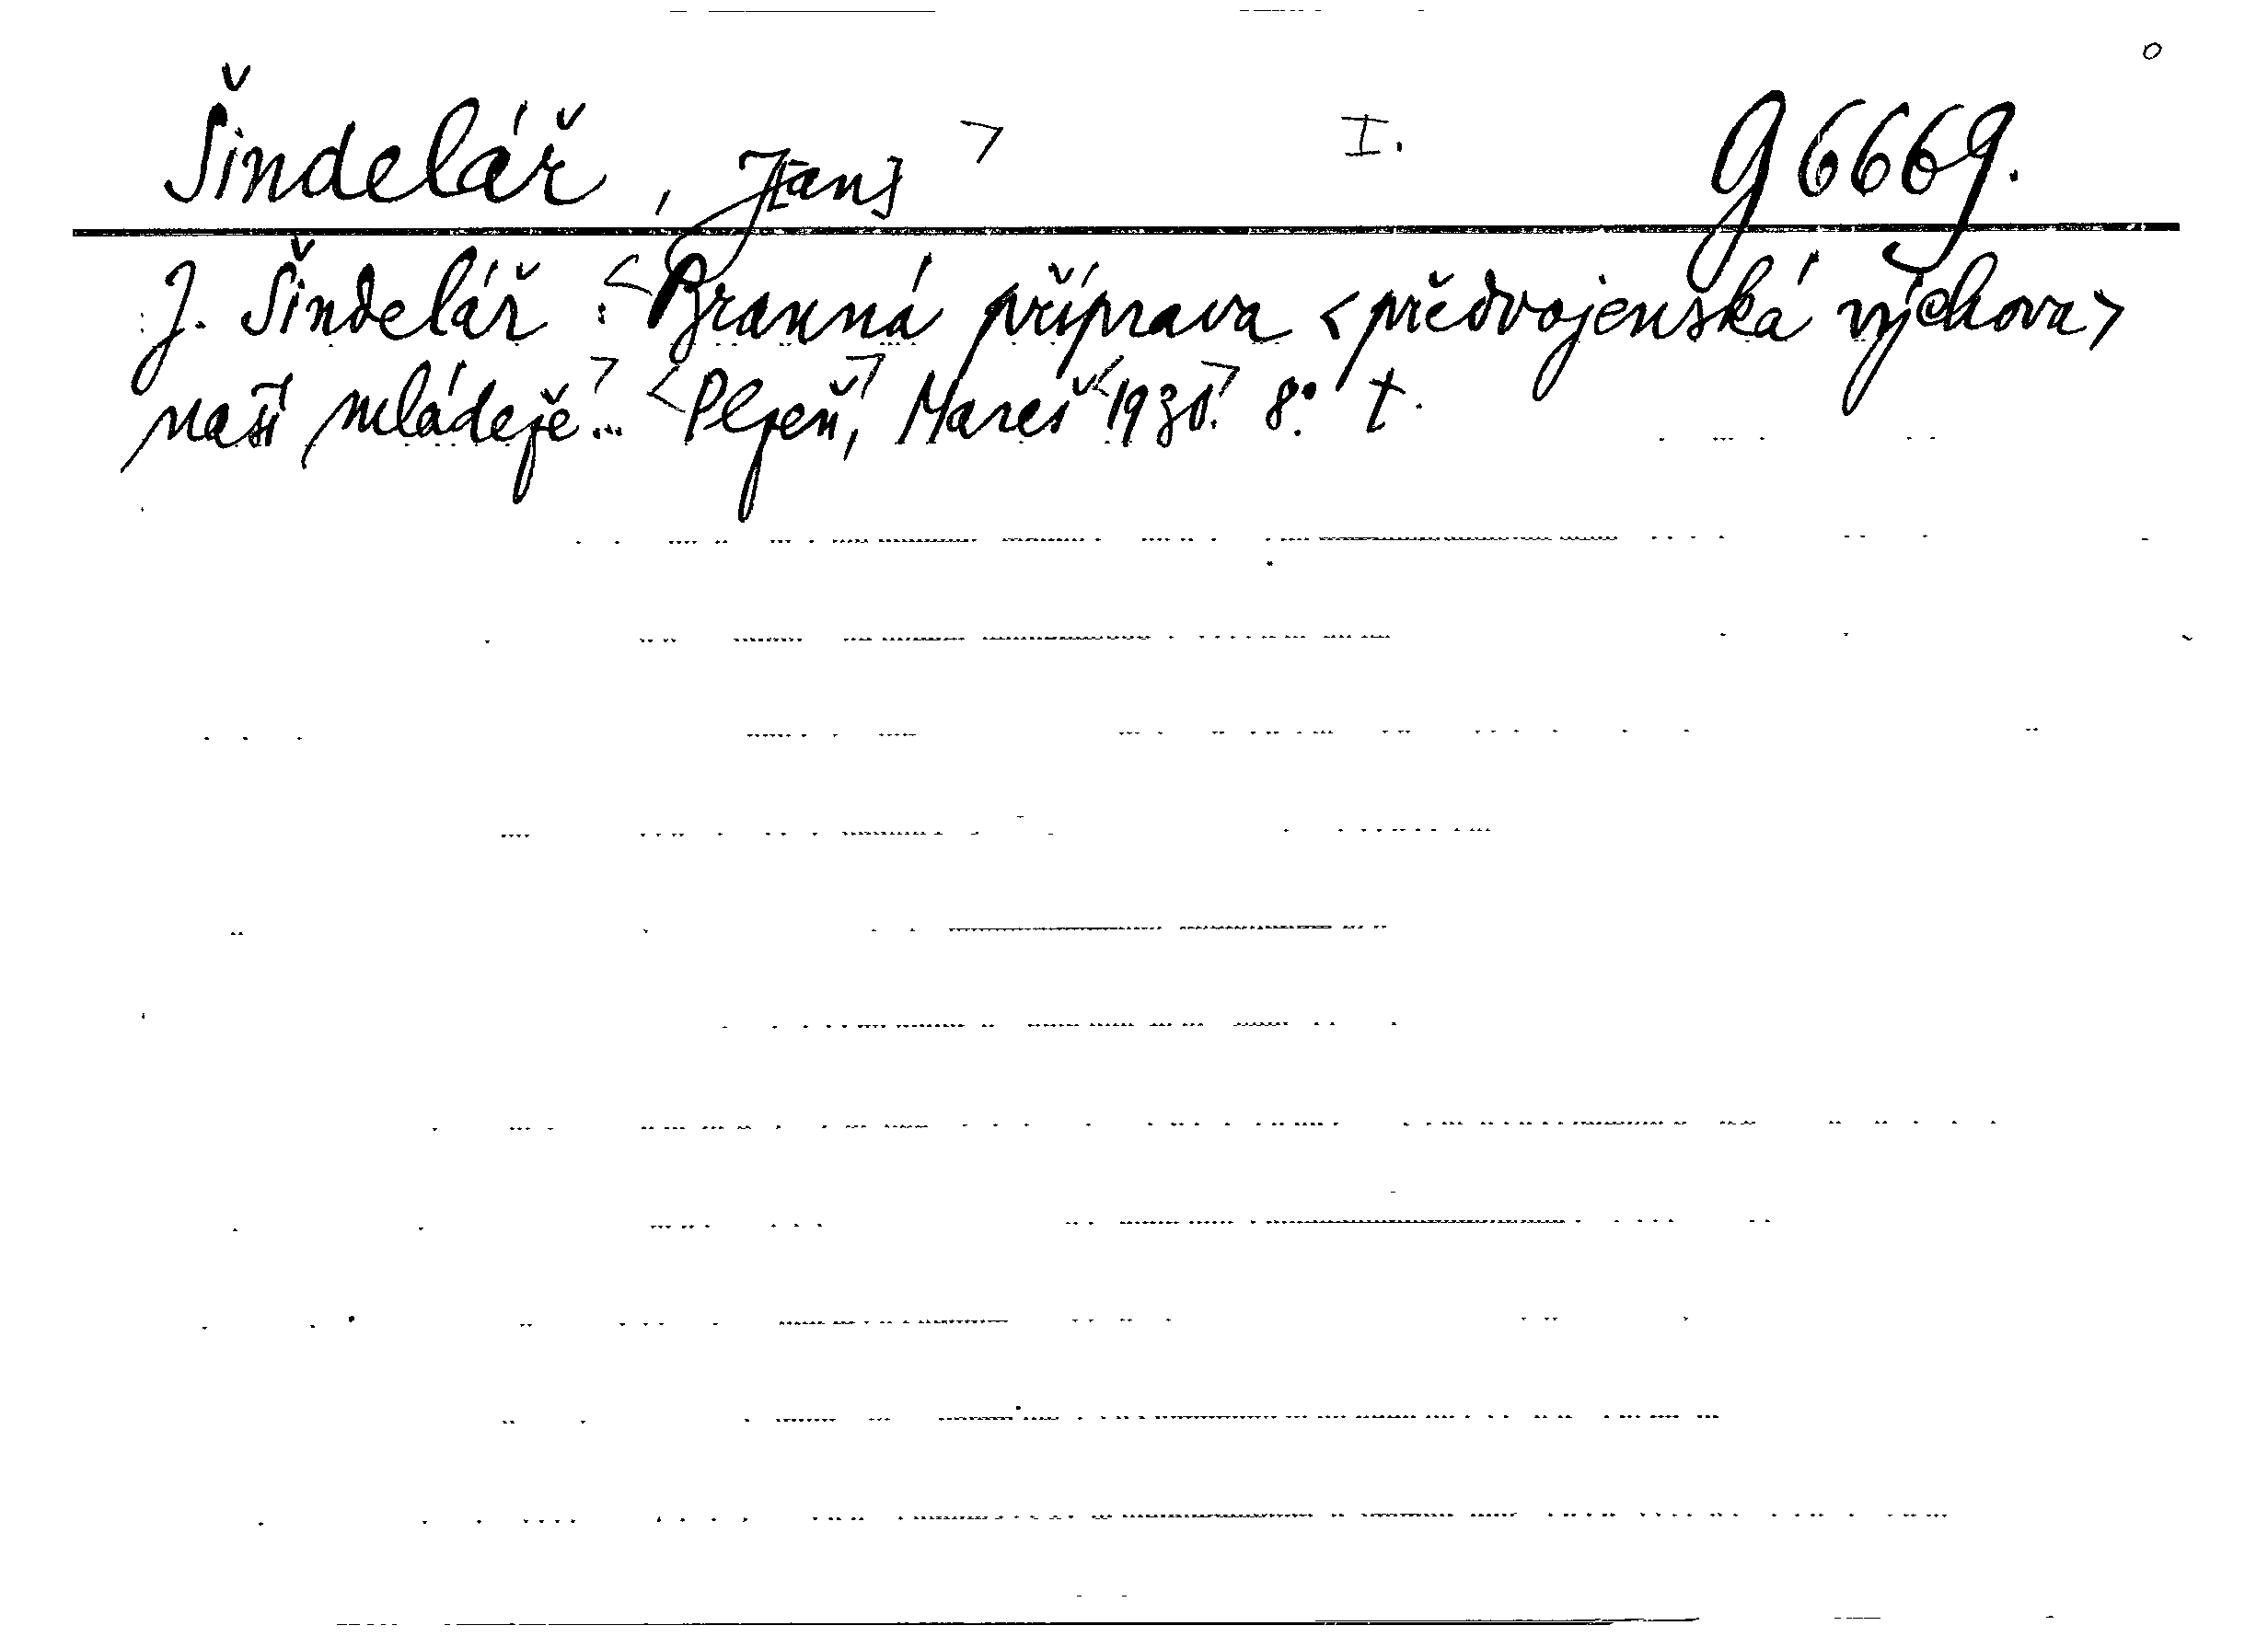 Šindelář, J[an] > I. g 6669.
J. Šindelář: <Branná příprava <předvojenská výchova>
naší mládeže...> <Plzeň>, Mareš <1930>. 8° t.